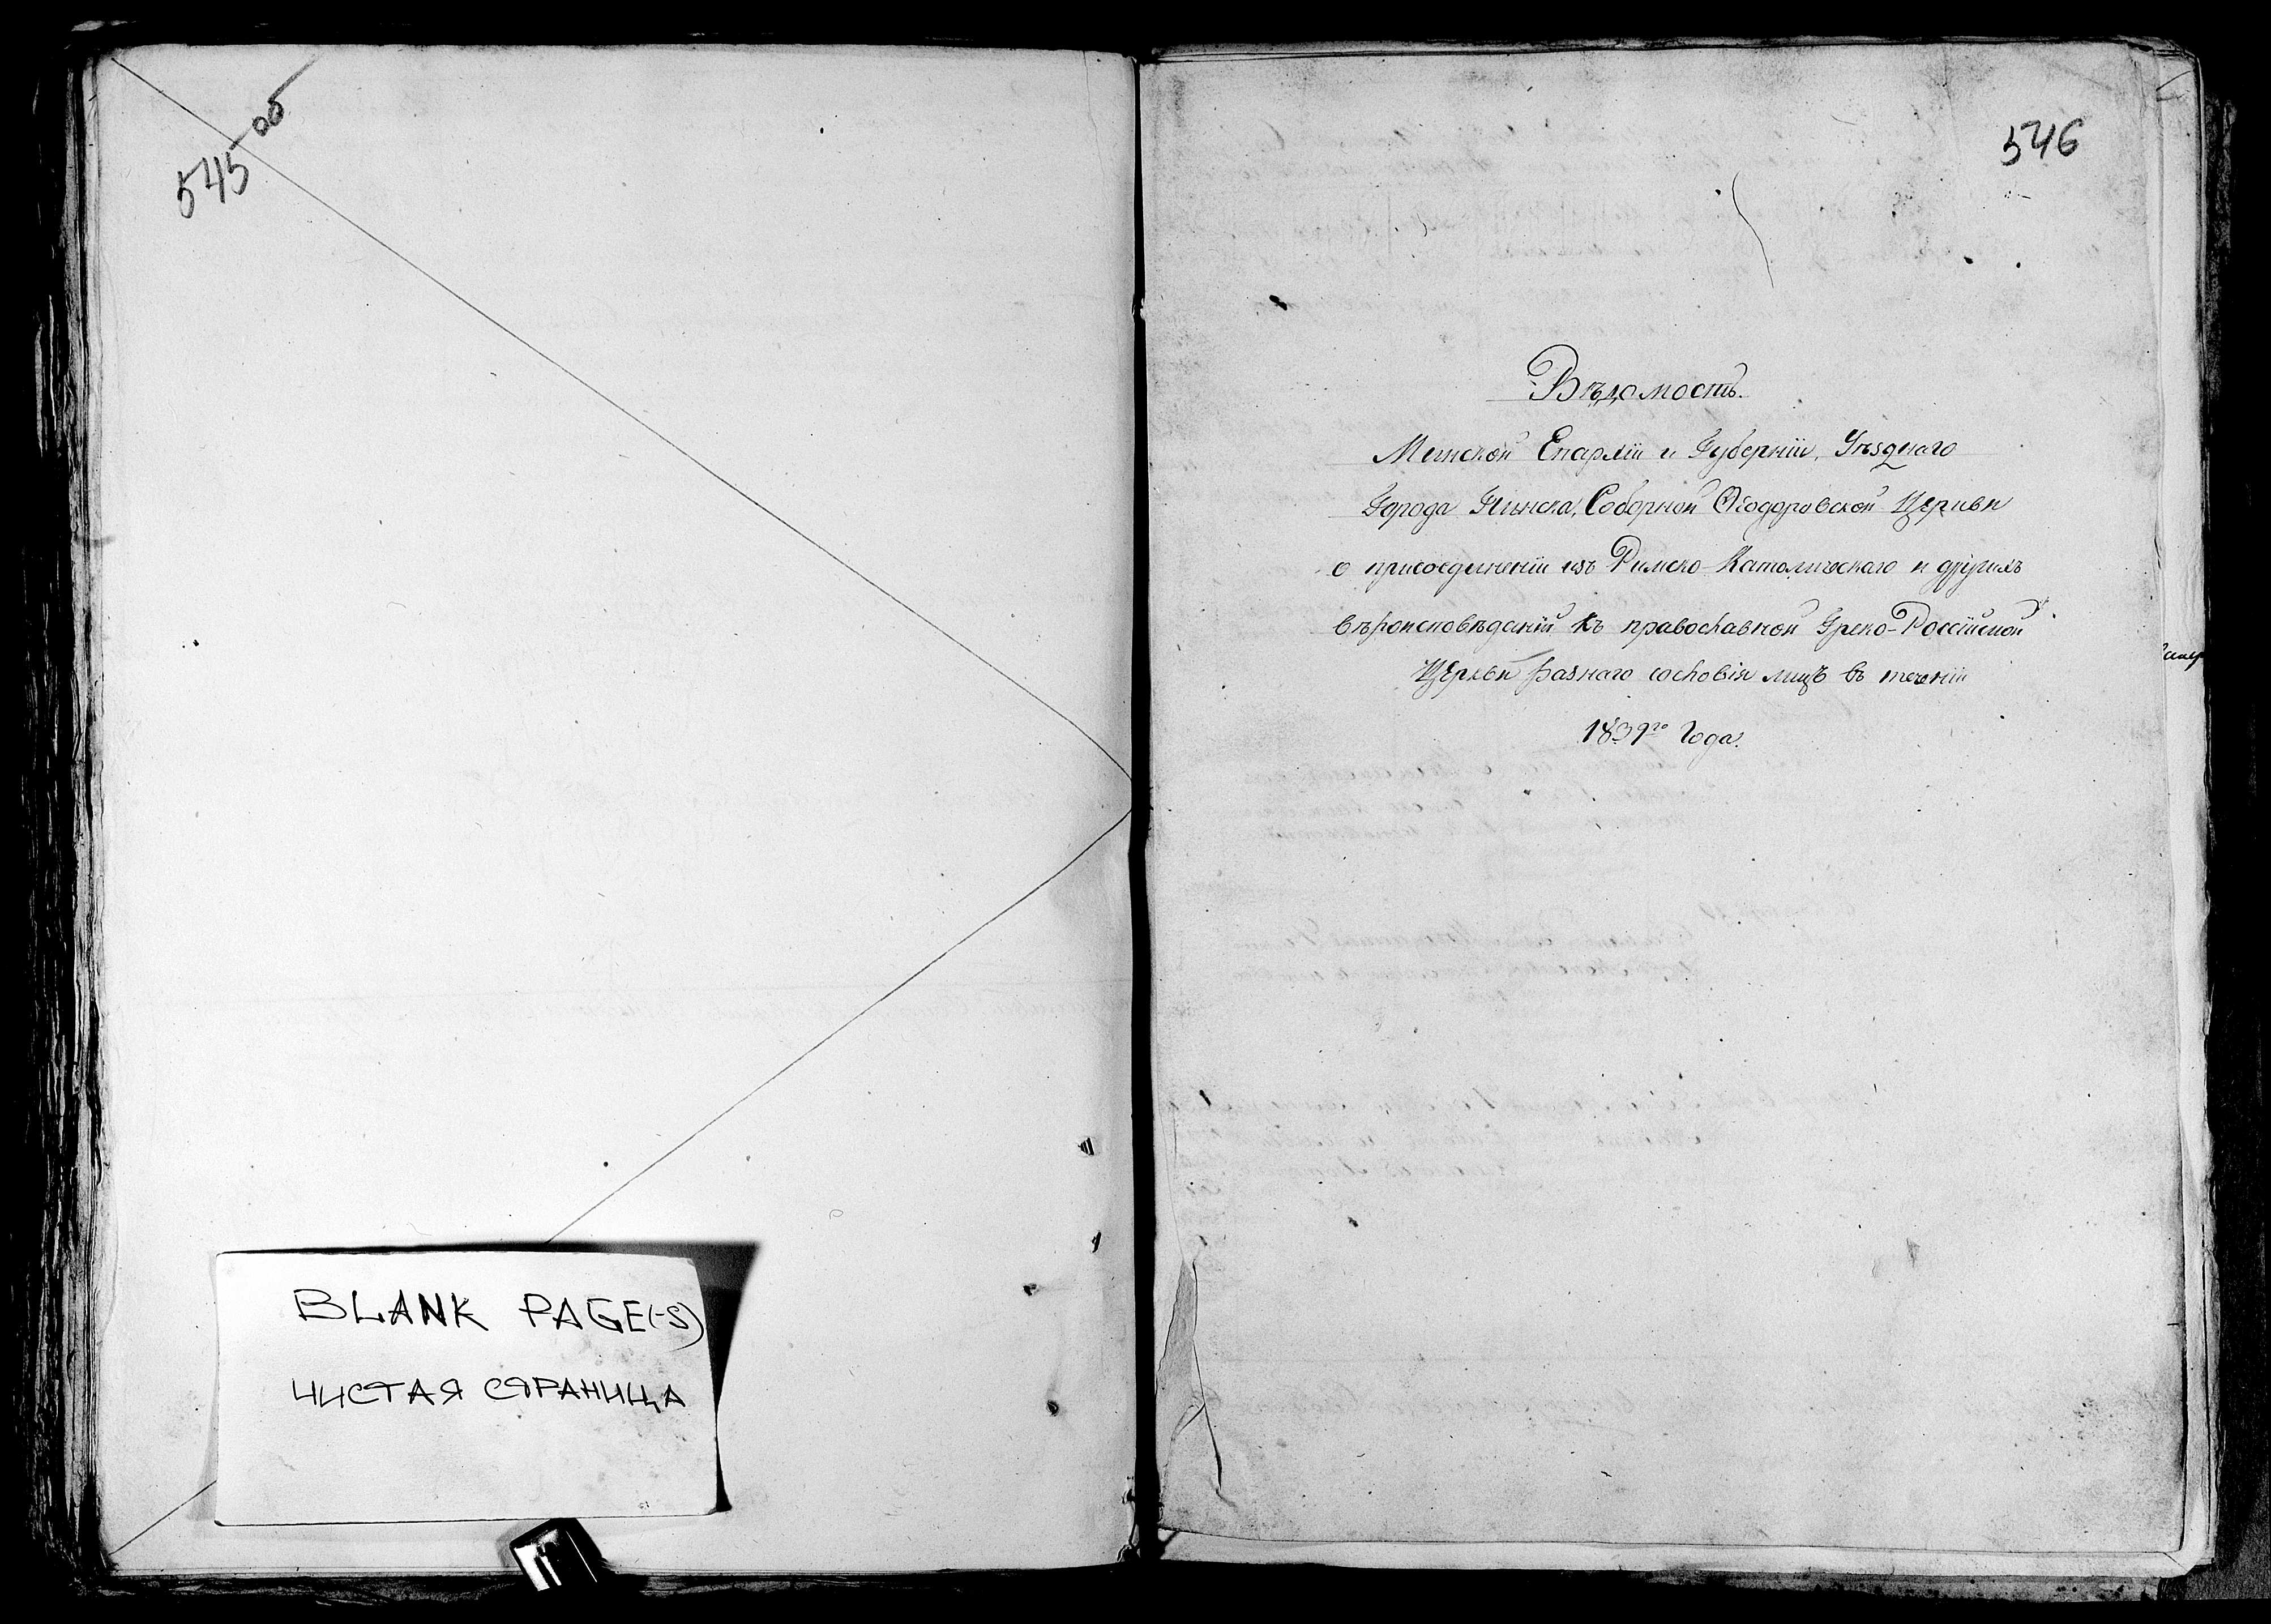 545 об
BLANK PAGE(-S)
ЧИСТАЯ СТРАНИЦА
546
Вѣдомость.
Минской Епархіи и Губерніи, Уѣзднаго
Города Пинска, Соборной Ѳеодоровской Церкви
о присоединеніи изъ Римско-Католическаго и другихъ
вѣроисповѣданій къ православной Греко-Россійской
Церкви разнаго сословія лицъ въ теченіи
1839го Года.